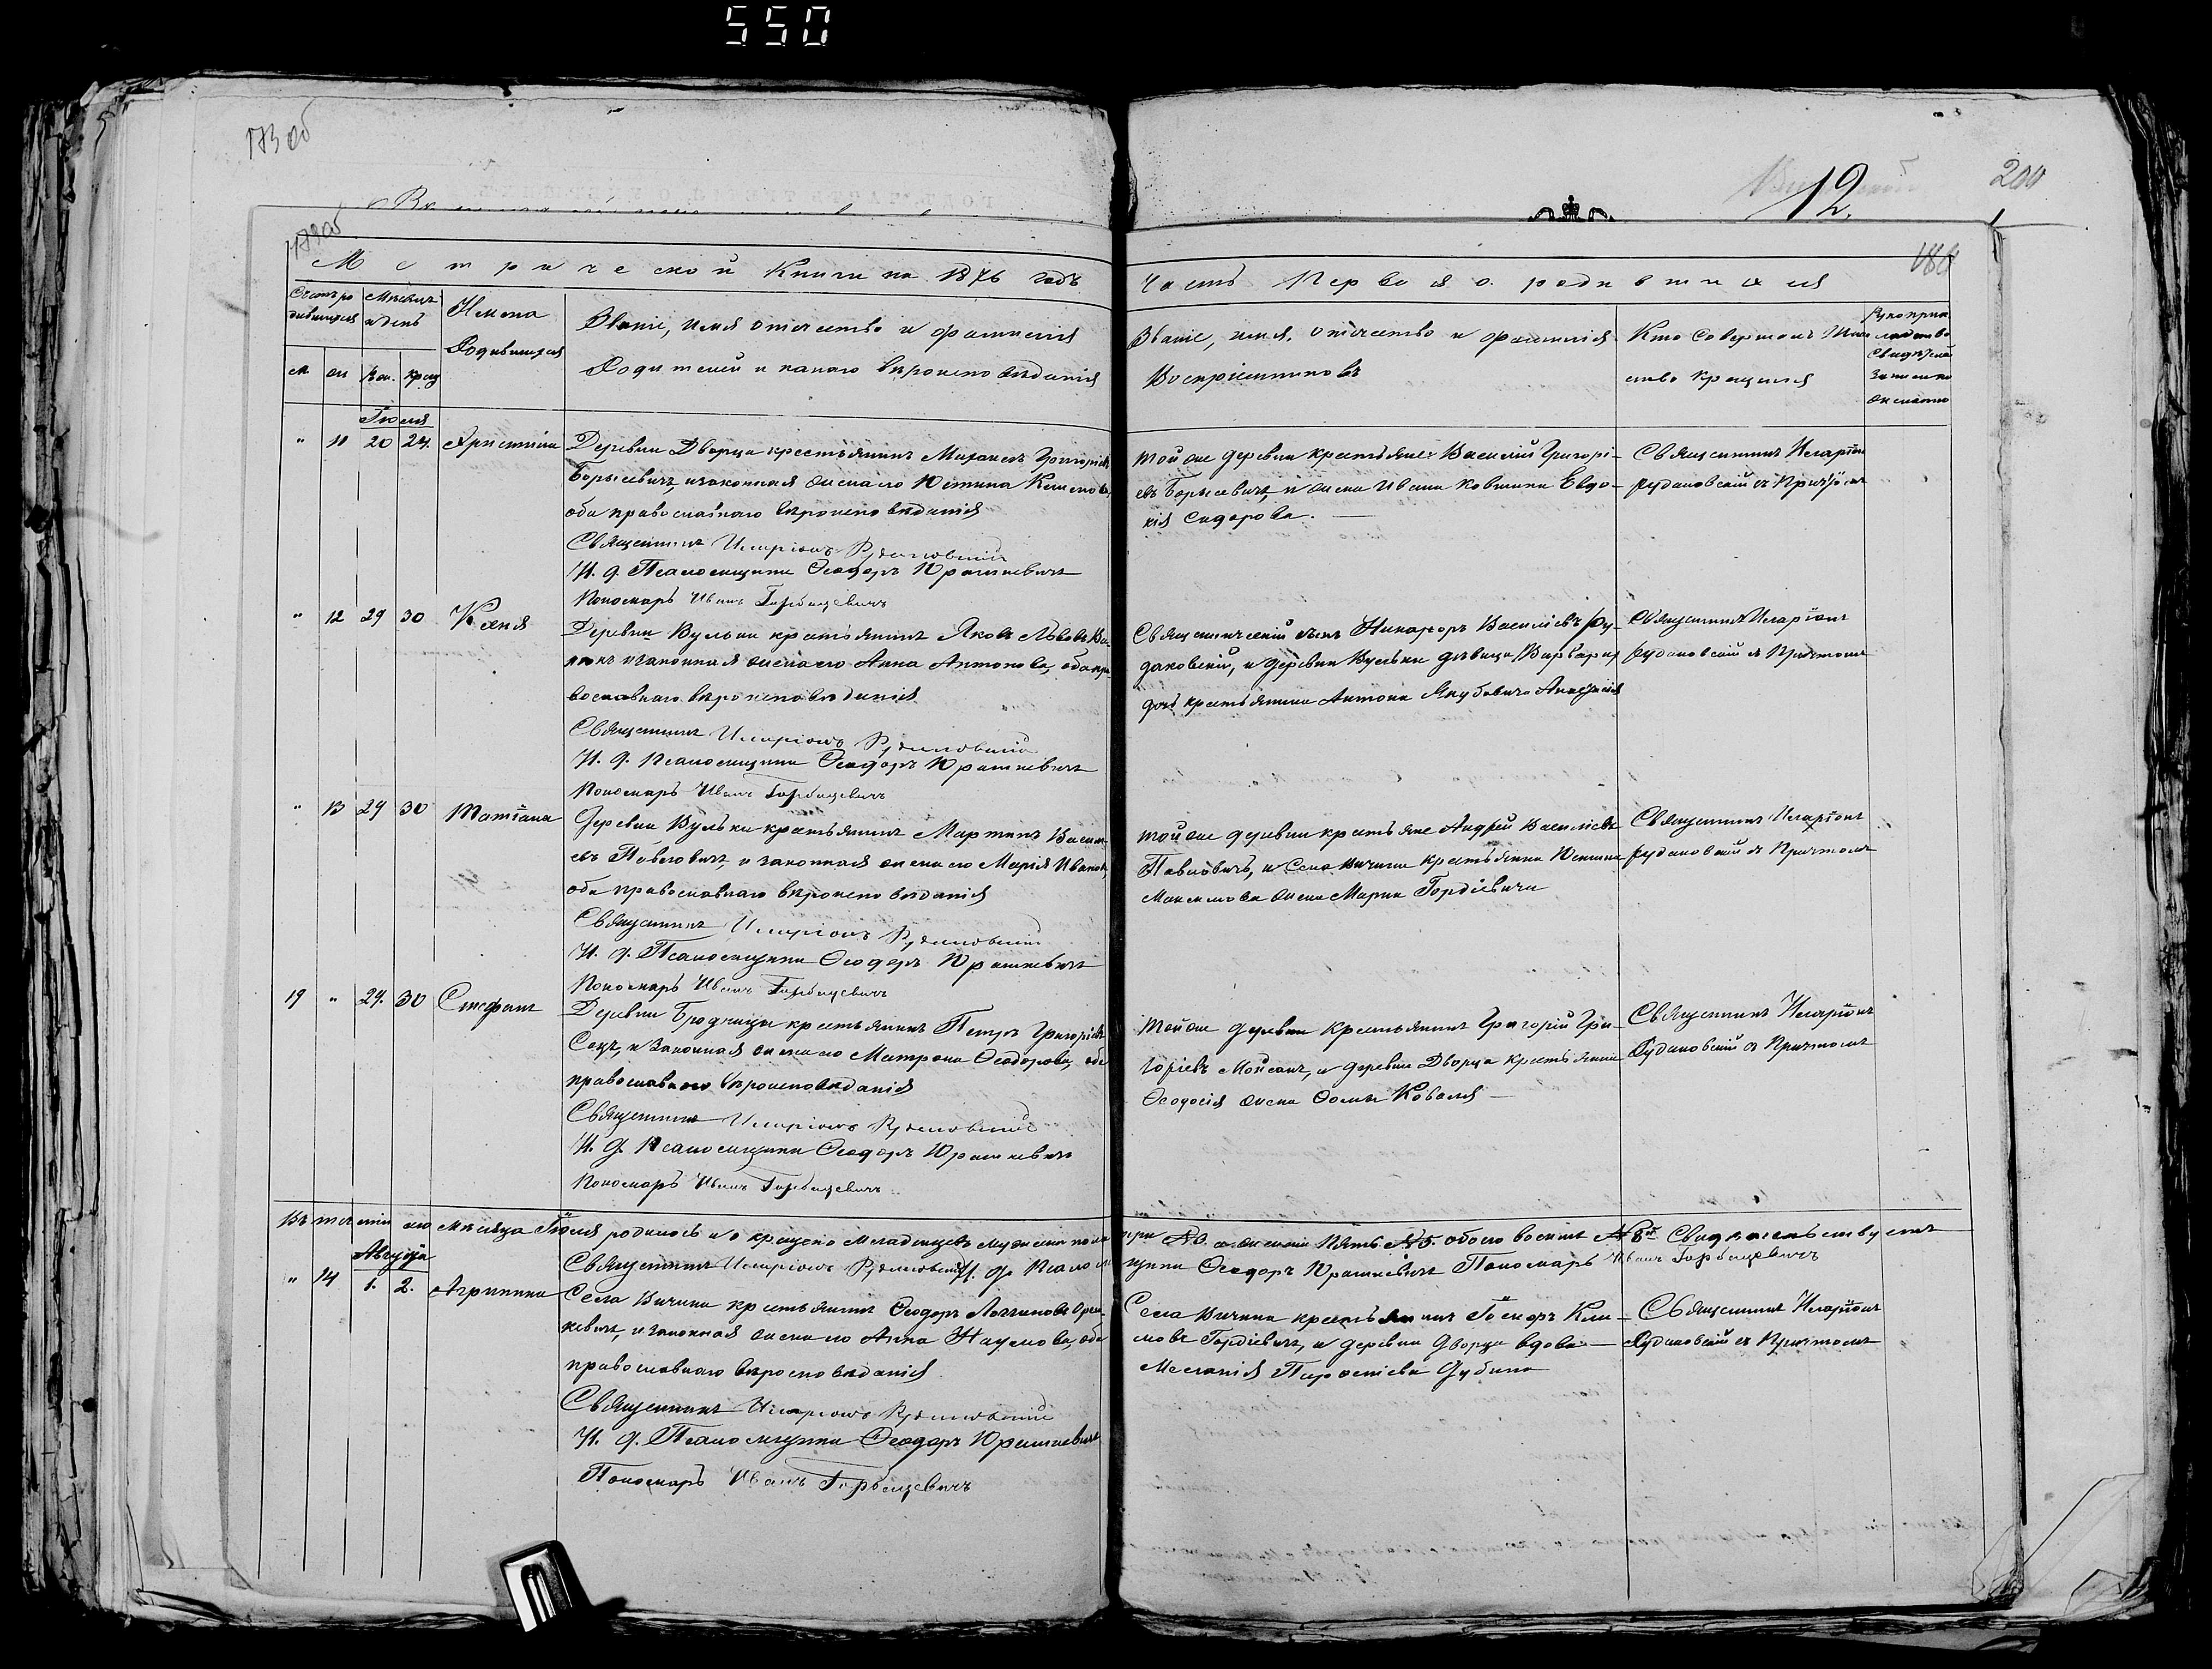 550
173 об
12.
200
173об
180
Метрической Книги на 1876 годъ
Часть Первая о родившихся
Счетъ родившихся
Мѣсяцъ и день
Имена Родившихся
Званіе, имя отчество и фамилія
Родителей и какого вѣроисповѣданія
Званіе, имя, отчество и фамилія
Воспріемниковъ
Кто совершалъ таинство крещенія
Рукоприкладство свидѣтелей записи по желанію
м ж Рож. Крещ
Іюля
" 11 20 24. Христина
Деревни Дворца крестьянинъ Григорьевъ
Борисевичъ, и законная жена его Юстина
оба православнаго вѣроисповѣданія
Священникъ Иларіонъ Рудаковскій
И. д. Псаломщика Ѳеодоръ Юрашкевичъ
Пономарь Иванъ Горбацевичъ
той же деревни крестьяне: Василій Григорі-
евъ Борисевичъ, и жена Ивана Ковшика Евдо-
кія Сидорова.
Священникъ Иларіонъ
Рудаковскій съ Причтомъ
" 12 29 30 Ксенія
Деревни Вульки крестьянинъ Яковъ Львовъ
и законная жена его Анна Антонова, оба пра-
вославнаго вѣроисповѣданія
Священникъ Иларіонъ Рудаковскій
И. д. Псаломщика Ѳеодоръ Юрашкевичъ
Пономарь Иванъ Горбацевичъ
Священническій сынъ Никифоръ Васильевъ Ру-
даковскій, и деревни Вульки дѣвица
дочь крестьянина Антона Якубовича Анастасія
Священникъ Иларіонъ
Рудаковскій съ Причтомъ
" 13 29 30 Татіана
Деревни Вульки крестьянинъ Мартинъ Василь-
евъ Павловичъ, и законная жена его Марія Иванова,
оба православнаго вѣроисповѣданія
Священникъ Иларіонъ Рудаковскій
И. д. Псаломщика Ѳеодоръ Юрашкевичъ
Пономарь Иванъ Горбацевичъ
той же деревни крестьяне Андрей Васильевъ
Павловичъ, и Села Вичина крестьянка Юстина
Максимова жена Марка Гордіевича
Священникъ Иларіонъ
Рудаковскій съ Причтомъ
19 " 29. 30 Стефанъ
Деревни Бродницы крестьянинъ Петръ Григорьевъ
и законная жена его Матрона Ѳеодорова, оба
православнаго вѣроисповѣданія
Священникъ Иларіонъ Рудаковскій
И. д. Псаломщика Ѳеодоръ Юрашкевичъ
Пономарь Иванъ Горбацевичъ
той же деревни крестьянинъ Григорій Гри-
горіевъ Мойсакъ, и деревни Дворца крестьянка
Ѳеодосія жена Ѳомы Коваля
Священникъ Иларіонъ
Рудаковскій съ Причтомъ
Въ теченіи сего мѣсяца Іюля родилось и окрещено младенцевъ мужеска пола три № 3. а женска пять № 5 обоего восемь № 8й Свидѣтельствуемъ
Священникъ Иларіонъ Рудаковскій И. д. Псаломщика Ѳеодоръ Юрашкевичъ Пономарь Иванъ Горбацевичъ
Августа
" 14 1. 2. Агрипина
Села Вичина крестьянинъ Ѳеодоръ Логгиновъ
и законная жена его Анна Наумова, оба
православнаго вѣроисповѣданія
Священникъ Иларіонъ Рудаковскій
И. д. Псаломщика Ѳеодоръ Юрашкевичъ
Пономарь Иванъ Горбацевичъ
Села Вичина крестьянинъ Кли-
мовъ Гордіевичъ, и деревни Дворца вдова
Меланія Дубина
Священникъ Иларіонъ
Рудаковскій съ Причтомъ